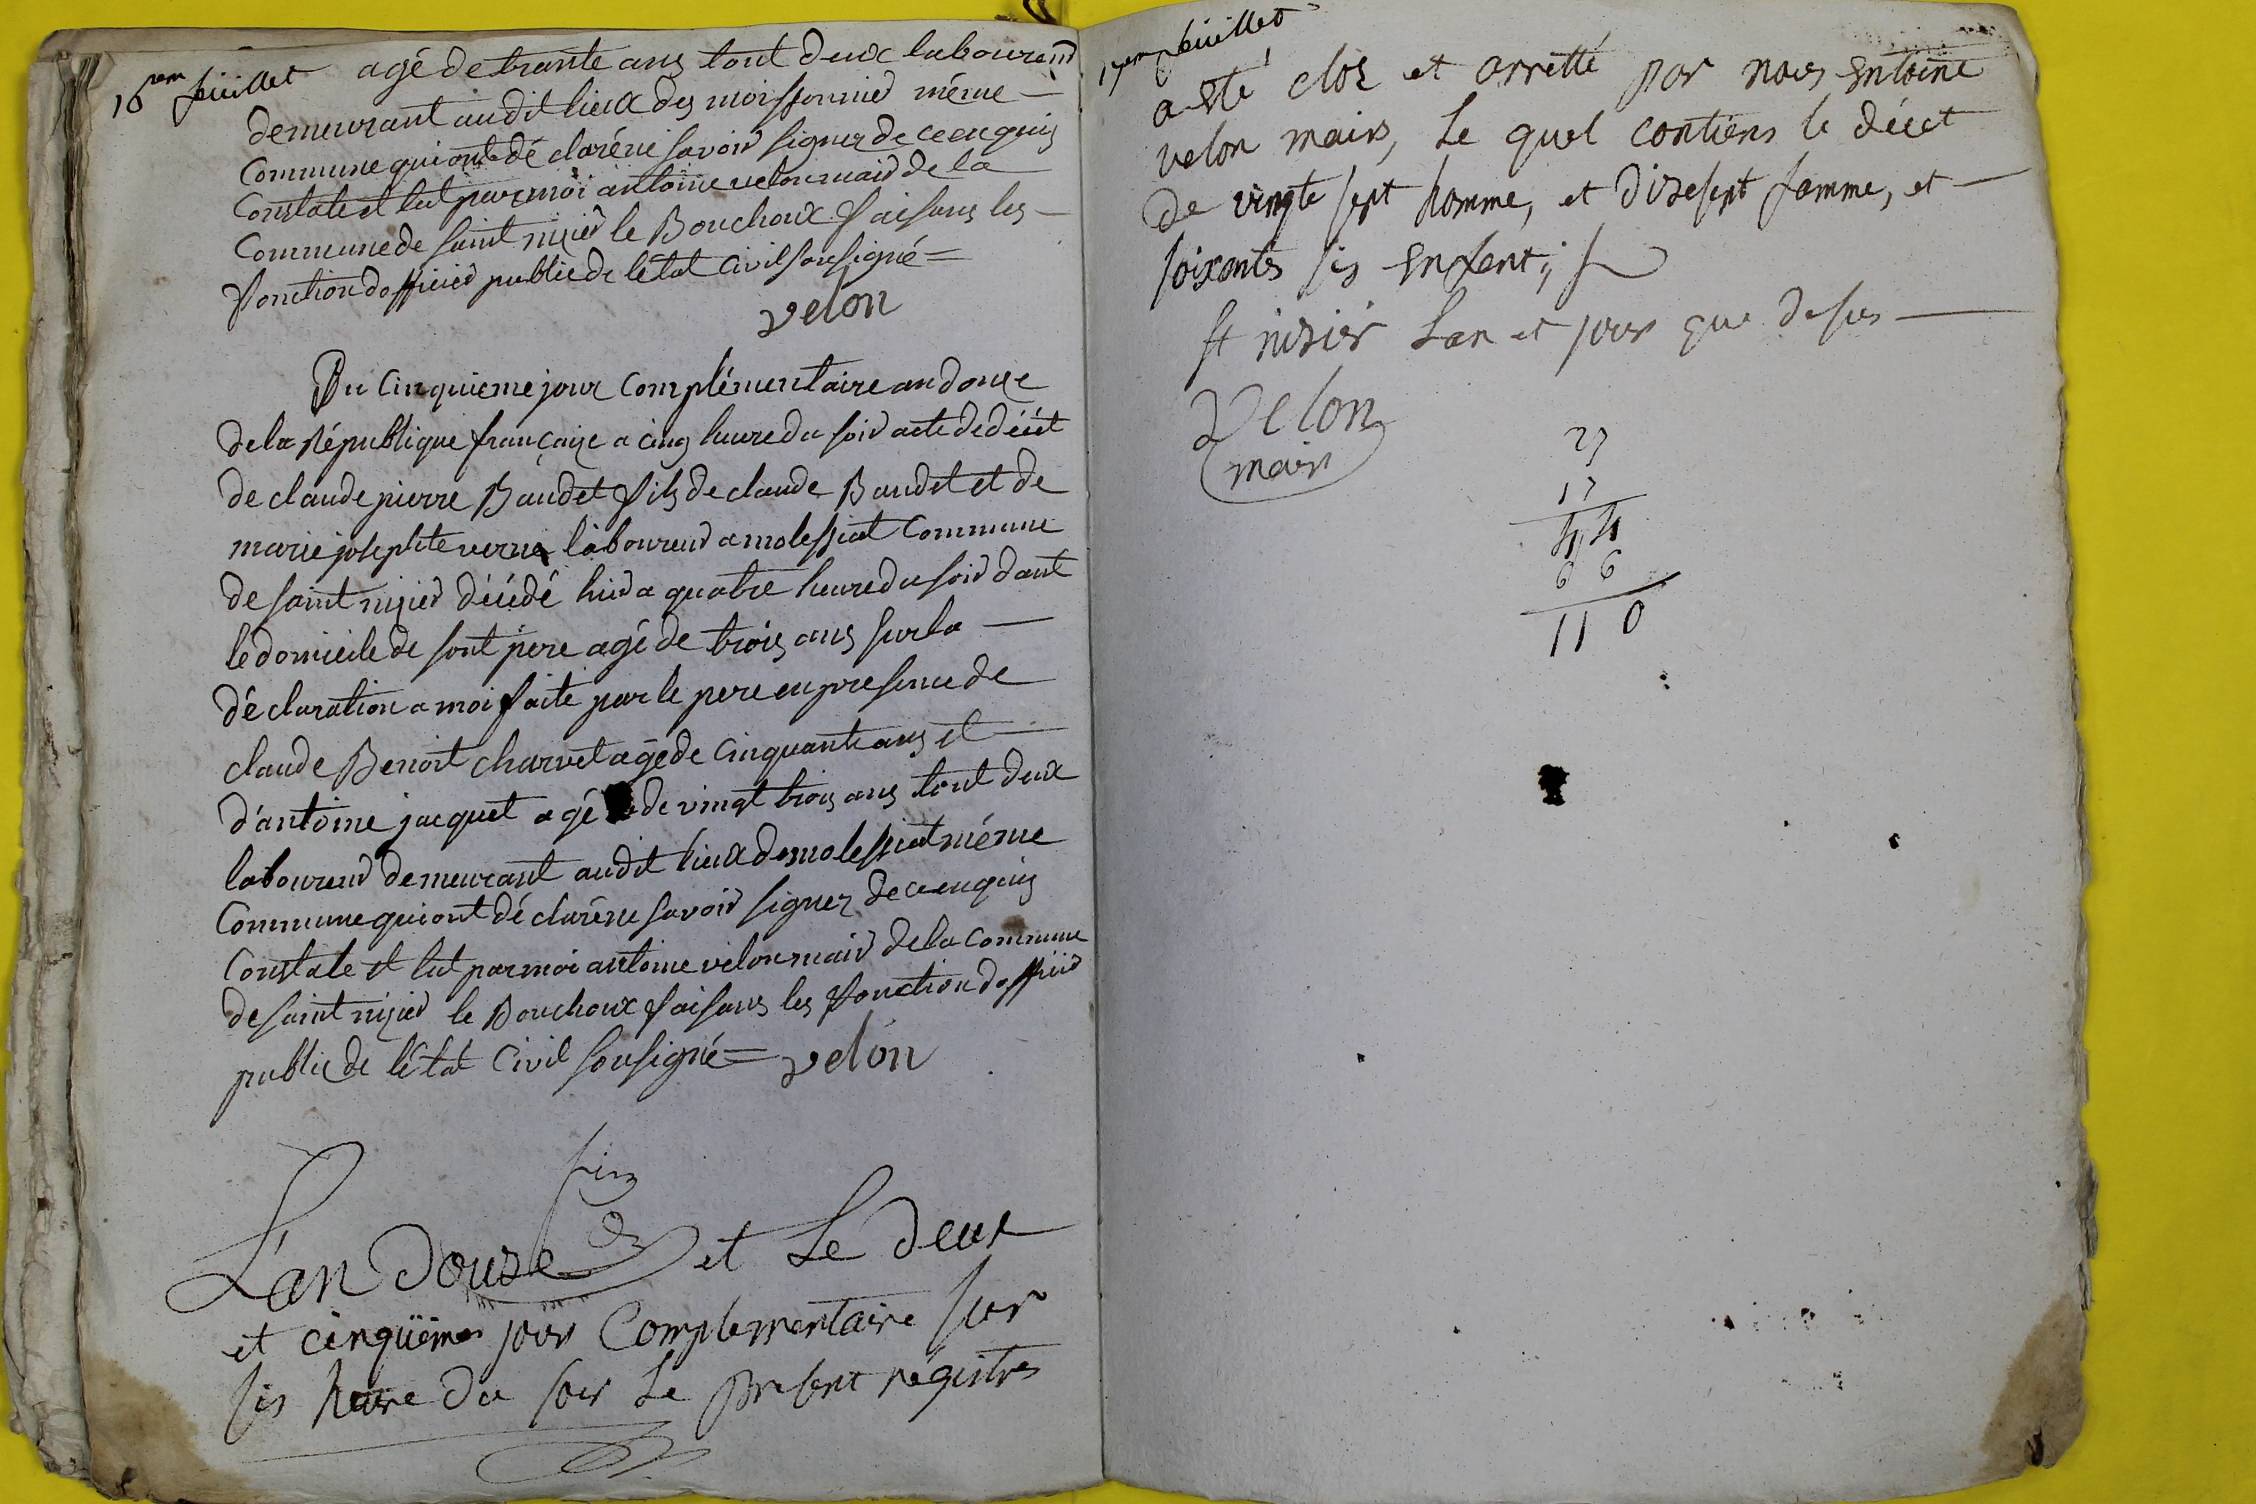 16em feuillet
agé de trante ans tout deux laboureur
demeurant audit lieux des moissonnier même
Commune qui ont dé claré ne savoir signer de ce enquis
Constate et lut par moi antoine velon mair de la
Commune de saint nizier le Bouchoux faisans les
fonction dofficier public de létat Civil sousigné =
velon
Du Cinquieme jour Complémentaire an douze
de la République françaize a cinq heure du soir acte de décét
de claude pierre Baudet fils de claude Baudet et de
marie josephte verne laboureur a molessiat Commune
de saint nizier décédé hier a quatre heure du soir dant
le domicile de sont pere agé de trois ans sur la
déclaration a moi faite par le pere en presence de
claude Benoit charvet agé de Cinquante ans et
d'antoine jacquet agé de vingt trois ans tout deux
laboureur demeurant audit lieux de molessiat même
Commune qui ont dé claré ne savoir signer de ce enquis
Constate et lut par moi antoine velon mair de la Commune
de saint nizier le Bouchoux faisans les fonction dofficier
public de létat Civil sousigné = velon
fin
L'an douze et Le deux
et cinquëme jour Complementaire sur
sis heure du soir Le present régistre
17em feuillet
a eté clos et arretté par nous Entoine
velon maire, Le quel contiens le décet
de vingte sept homme, et dizesept famme, et
soixante sis Enfent ;
st nizier Lan et jour que desus
Velon
maire
27
17
44
66
110